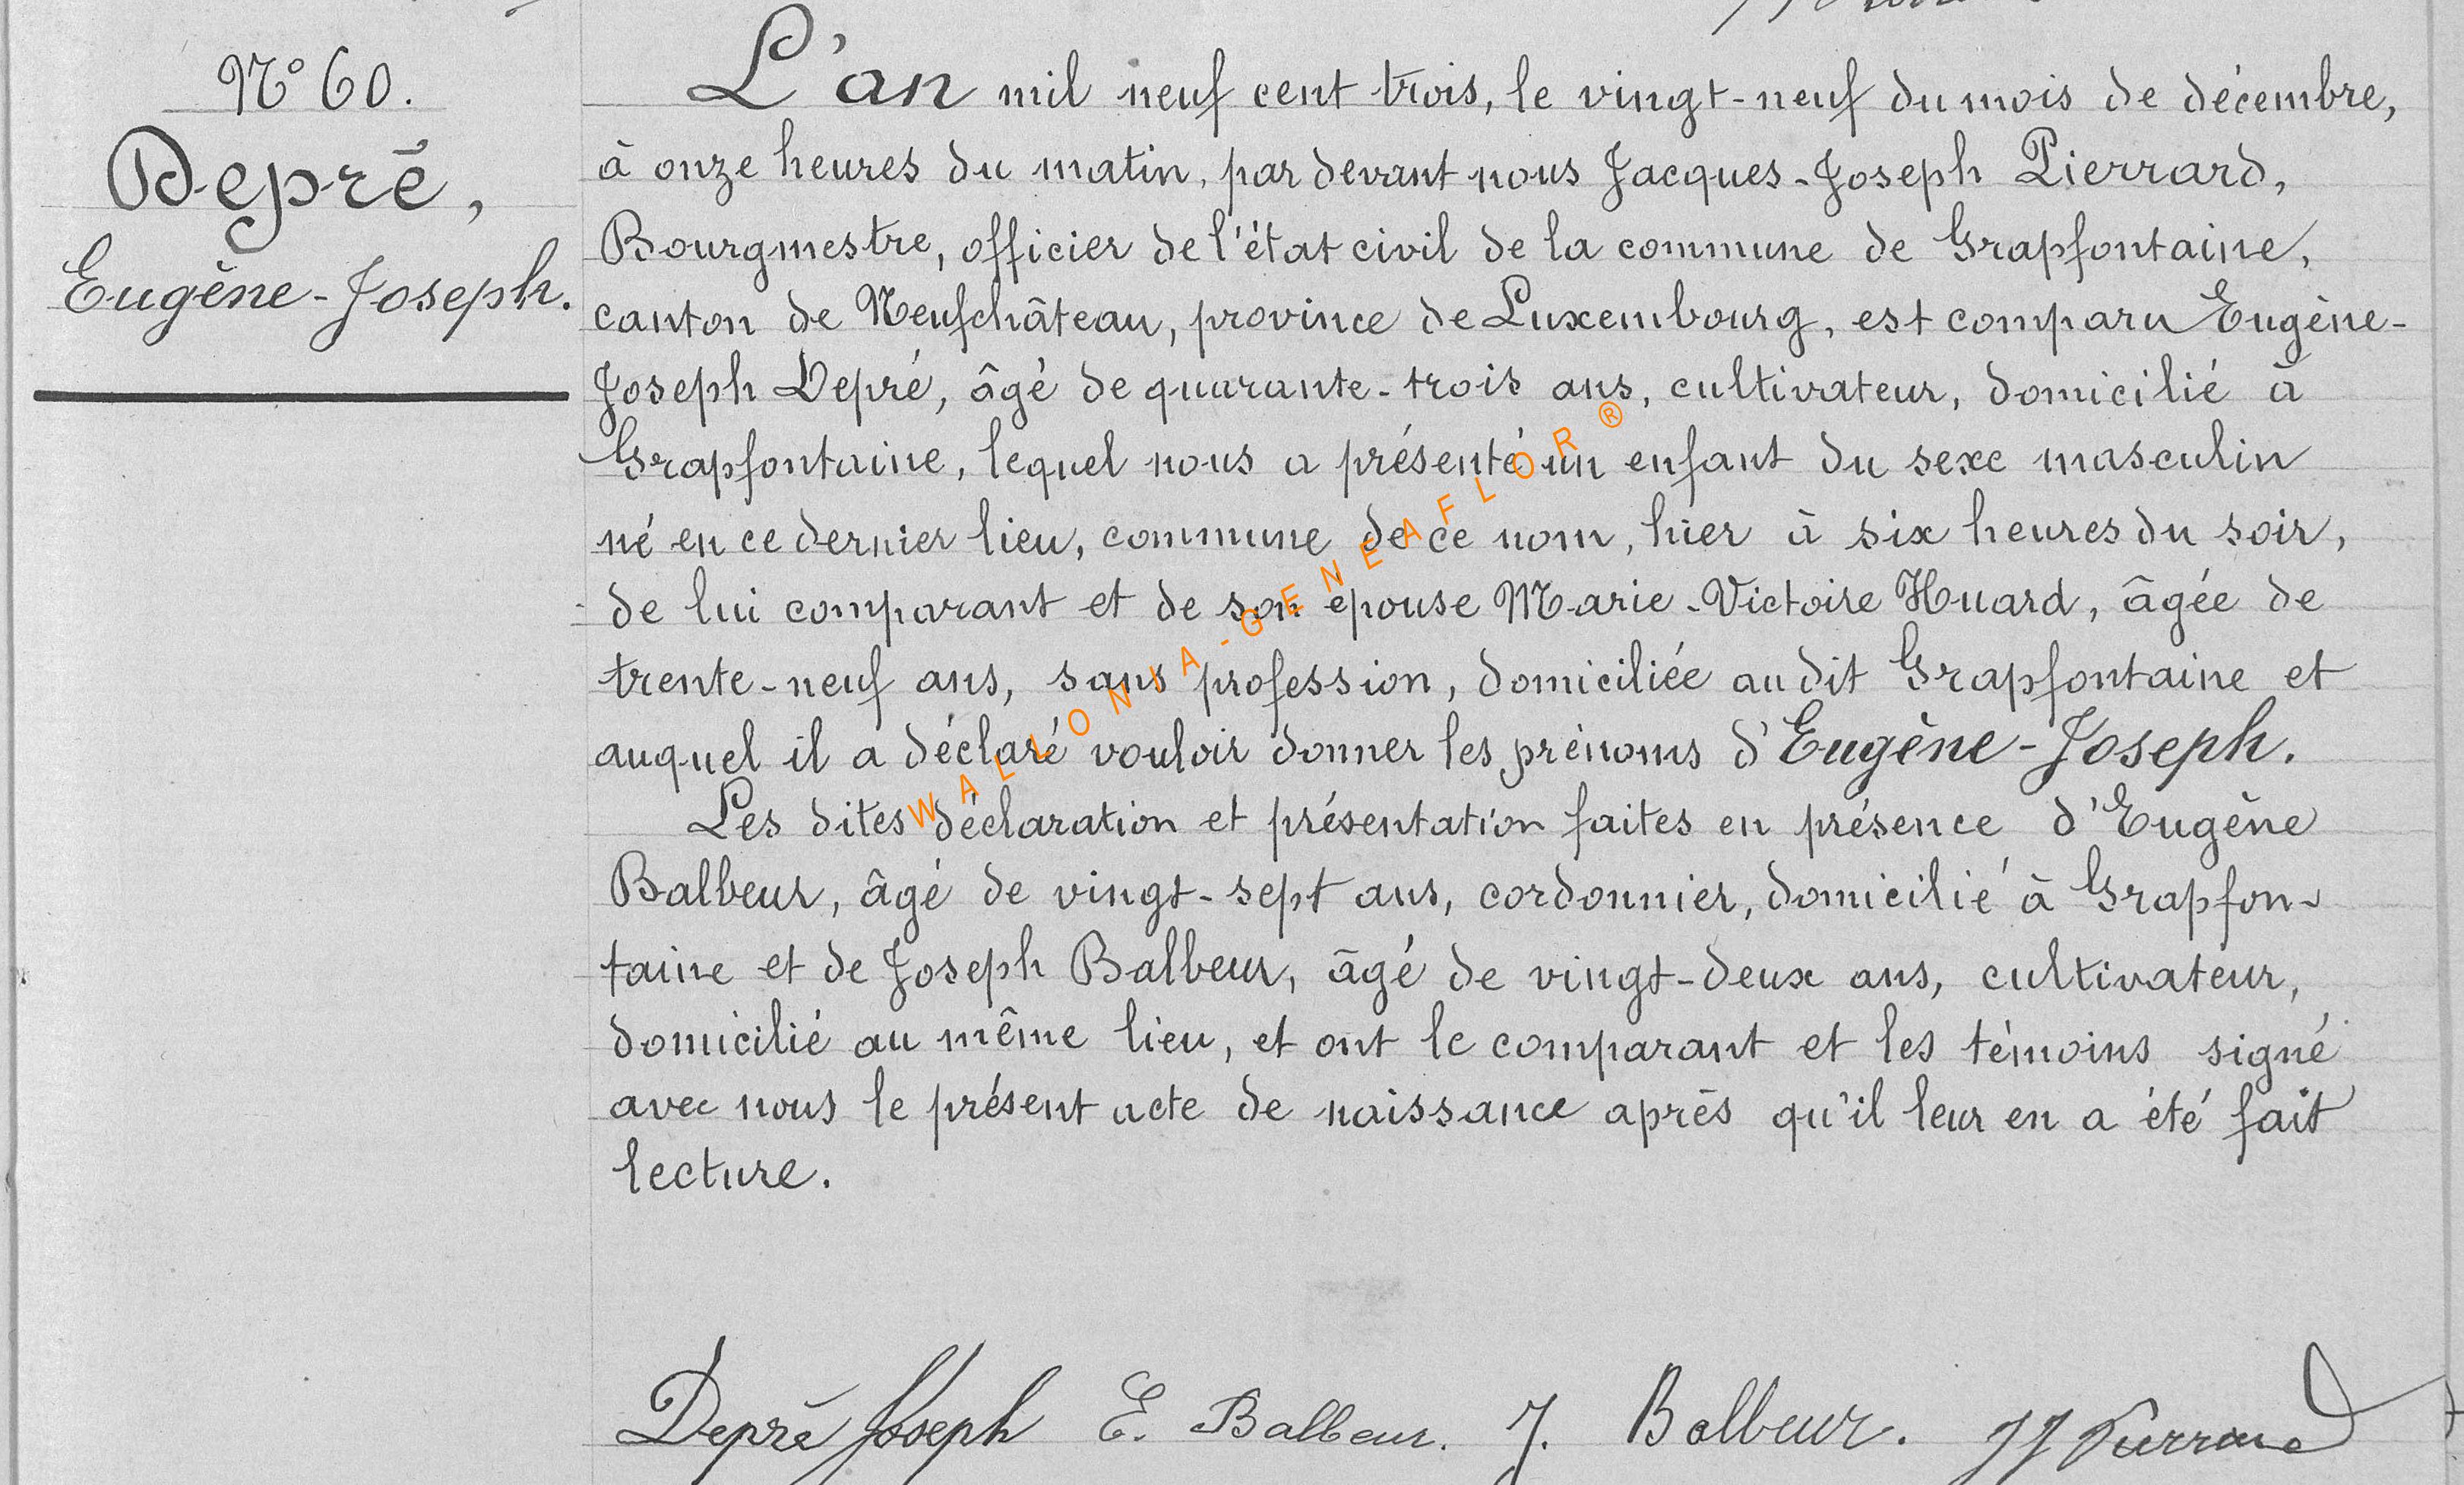 N° 60.
Depré,
Eugène-Joseph.
L'an mil neuf cent trois, le vingt-neuf du mois de décembre,
à onze heures du matin, par devant nous Jacques-Joseph Pierrard,
Bourgmestre, officier de l'état civil de la commune de Grapfontaine,
canton de Neufchâteau, province de Luxembourg, est comparu Eugène-
Joseph Depré, âgé de quarante-trois ans, cultivateur, domicilié à
Grapfontaine, lequel nous a présenté un enfant du sexe masculin
né en ce dernier lieu, commune de ce nom, hier à six heures du soir,
de lui comparant et de son épouse Marie-Victoire Huard, âgée de
trente-neuf ans, sans profession, domiciliée au dit Grapfontaine et
auquel il a déclaré vouloir donner les prénoms d'Eugène-Joseph.
Les dites déclaration et présentation faites en présence d'Eugène
Balbeur, âgé de vingt-sept ans, cordonnier, domicilié à Grapfon-
taine et de Joseph Balbeur, âgé de vingt-deux ans, cultivateur,
domicilié au même lieu, et ont le comparant et les témoins signé
avec nous le présent acte de naissance après qu'il leur en a été fait
lecture.
Depré Joseph E. Balbeur. J. Balbeur. JJ Pierrard
WALLONIA-GENEAFLOR®